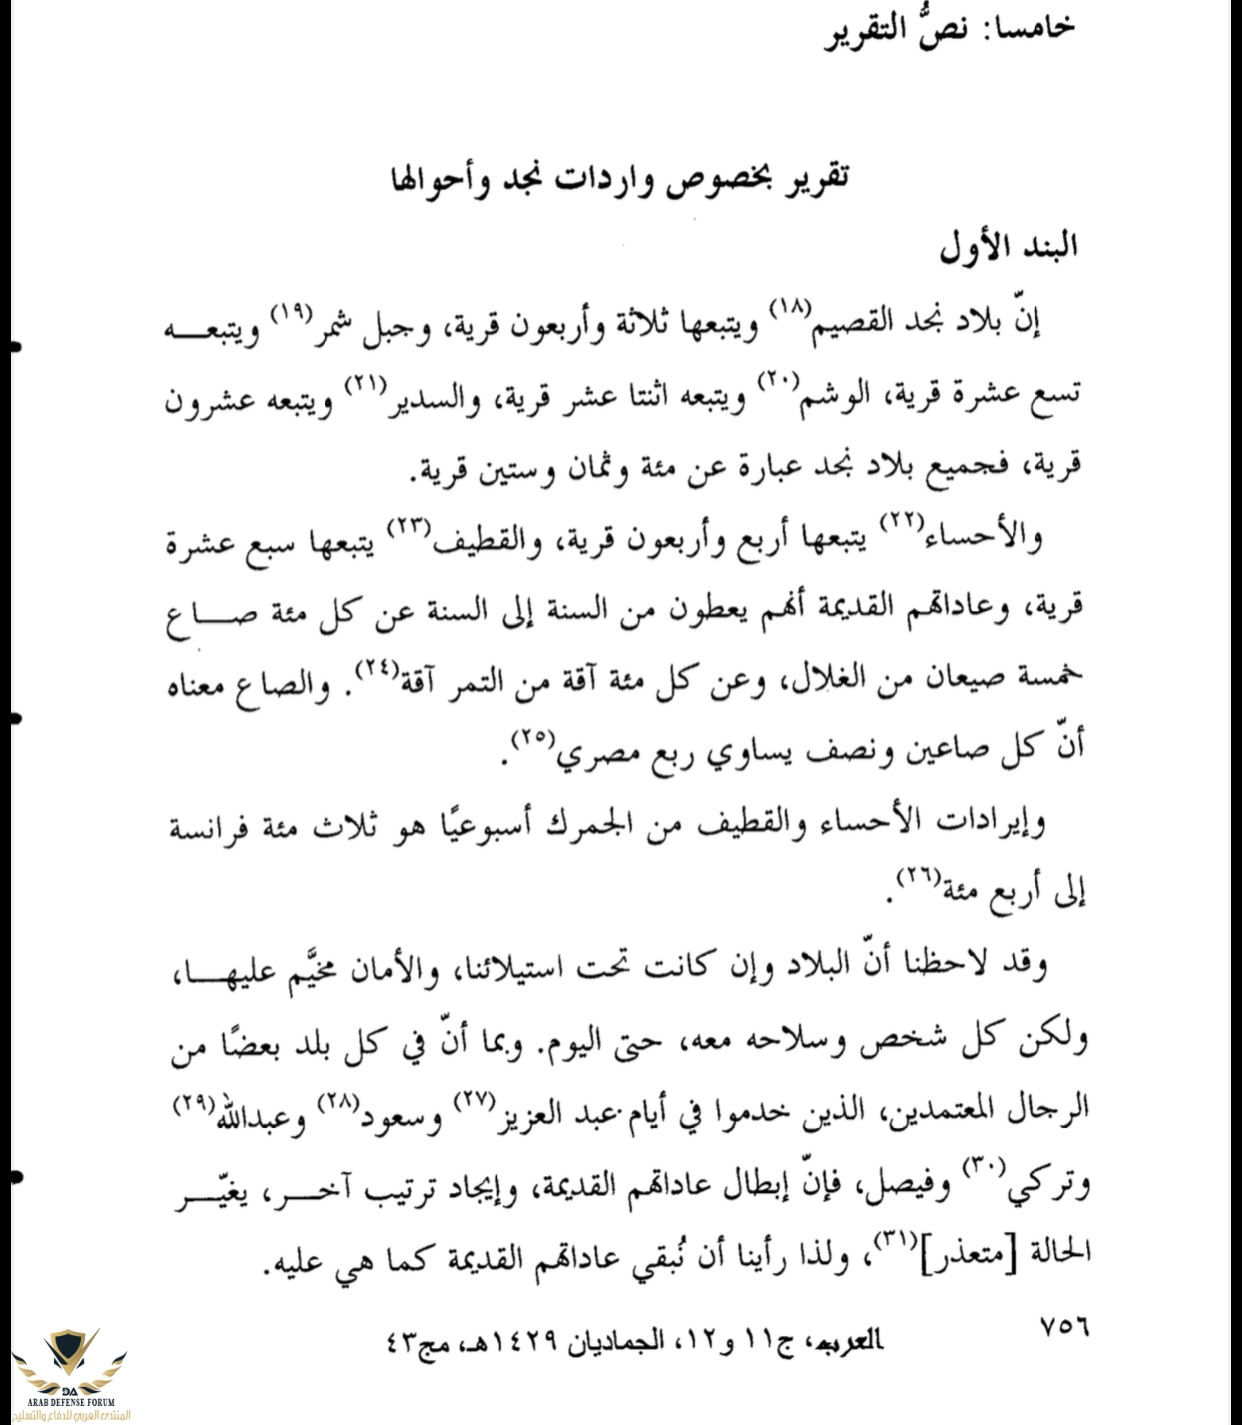 خامسا: نصُّ التقرير
تقرير بخصوص واردات نجد وأحوالها
البند الأول
إنّ بلاد نجد القصيم(١٨) ويتبعها ثلاثة وأربعون قرية، وجبل شمر(١٩) ويتبعـــه
تسع عشرة قرية، الوشم(٢٠) ويتبعه اثنتا عشر قرية، والسدير(٢١) ويتبعه عشرون
قرية، فجميع بلاد نجد عبارة عن مئة وثمان وستين قرية.
والأحساء(٢٢) يتبعها أربع وأربعون قرية، والقطيف(٢٣) يتبعها سبع عشرة
قرية، وعاداتهم القديمة أنهم يعطون من السنة إلى السنة عن كل مئة صـــاع
خمسة صيعان من الغلال، وعن كل مئة آقة من التمر آقة(٢٤). والصاع معناه
أنّ كل صاعين ونصف يساوي ربع مصري(٢٥).
وإيرادات الأحساء والقطيف من الجمرك أسبوعيًا هو ثلاث مئة فرانسة
إلى أربع مئة(٢٦).
وقد لاحظنا أنّ البلاد وإن كانت تحت استيلائنا، والأمان مخيَّم عليهـــا،
ولكن كل شخص وسلاحه معه، حتى اليوم. وبما أنّ في كل بلد بعضًا من
الرجال المعتمدين، الذين خدموا في أيام عبد العزيز(٢٧) وسعود(٢٨) وعبدالله(٢٩)
وتركي(٣٠) وفيصل، فإنّ إبطال عاداتهم القديمة، وإيجاد ترتيب آخـــر، يغيّـــر
الحالة [متعذر](٣١)، ولذا رأينا أن نُبقي عاداتهم القديمة كما هي عليه.
٧٥٦
العرب، ج١١ و١٢، الجماديان ١٤٢٩هـ، مج٤٣
DA
ARAB DEFENSE FORUM
المنتدى العربي للدفاع والتسليح